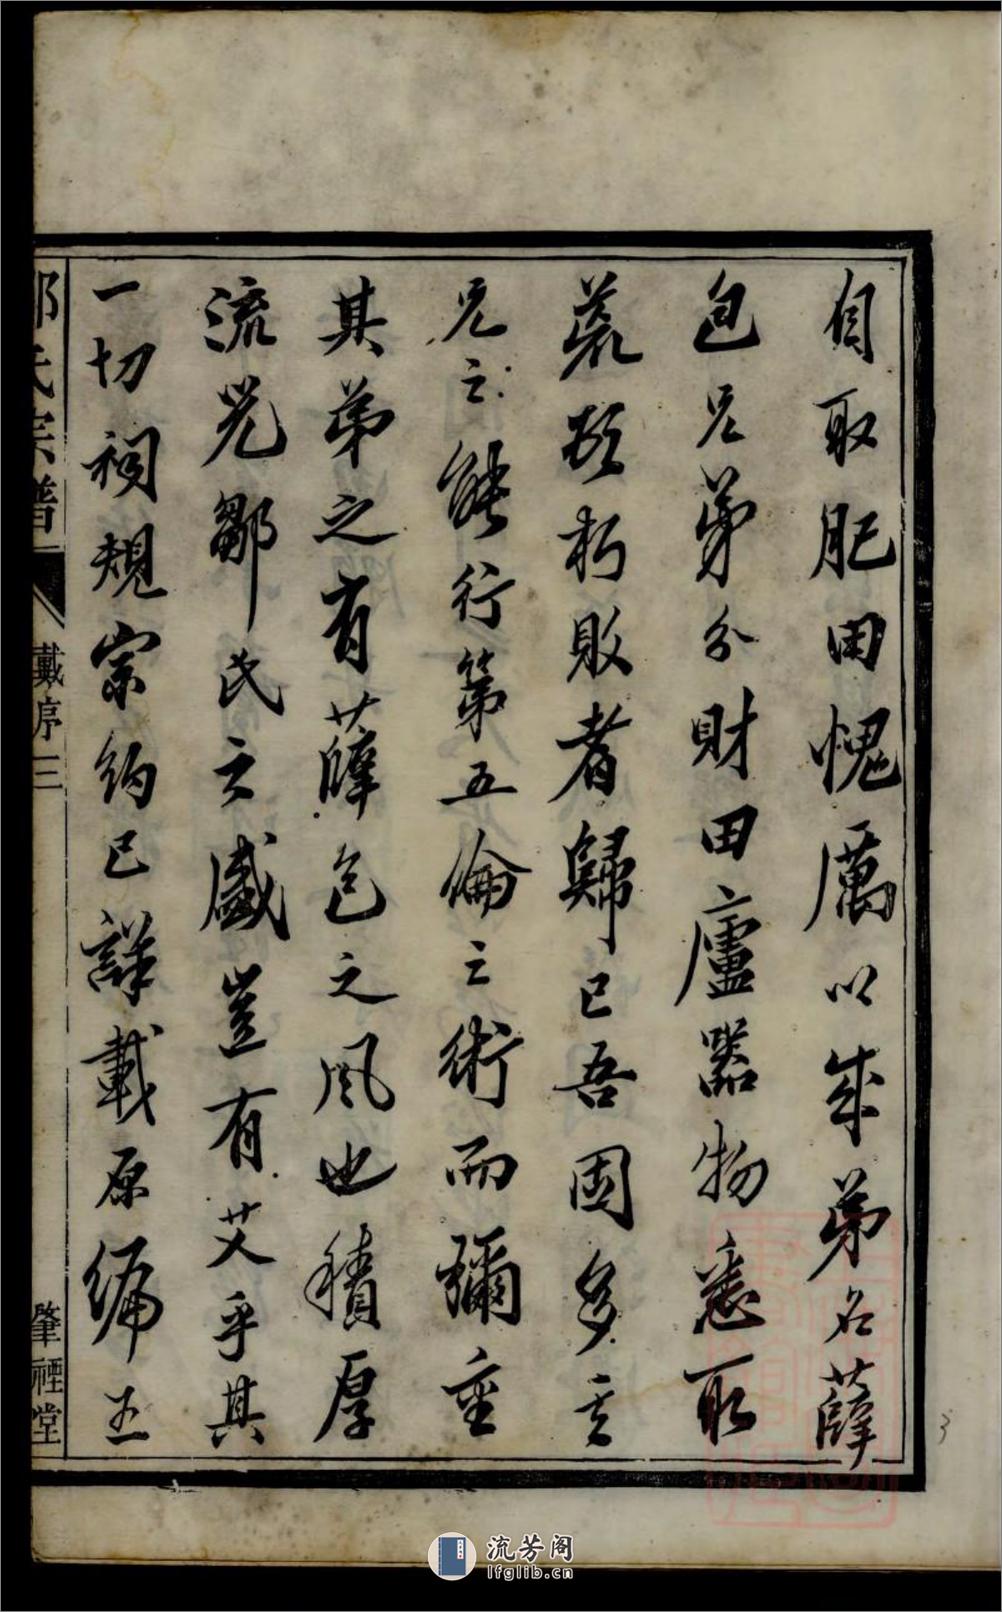 自取肥田愧厲以成弟名薛
包兄弟分財田廬器物悉取
荒頓朽敗者歸已吾固多其
兄之能行第五倫之術而彌重
其弟之有薛包之風也積厚
流光鄒氏之盛豈有艾乎其
一切祠規宗約已詳載原編王
氏宗譜
戴序 三
肇禋堂
3
流芳阁
lfglib.cn